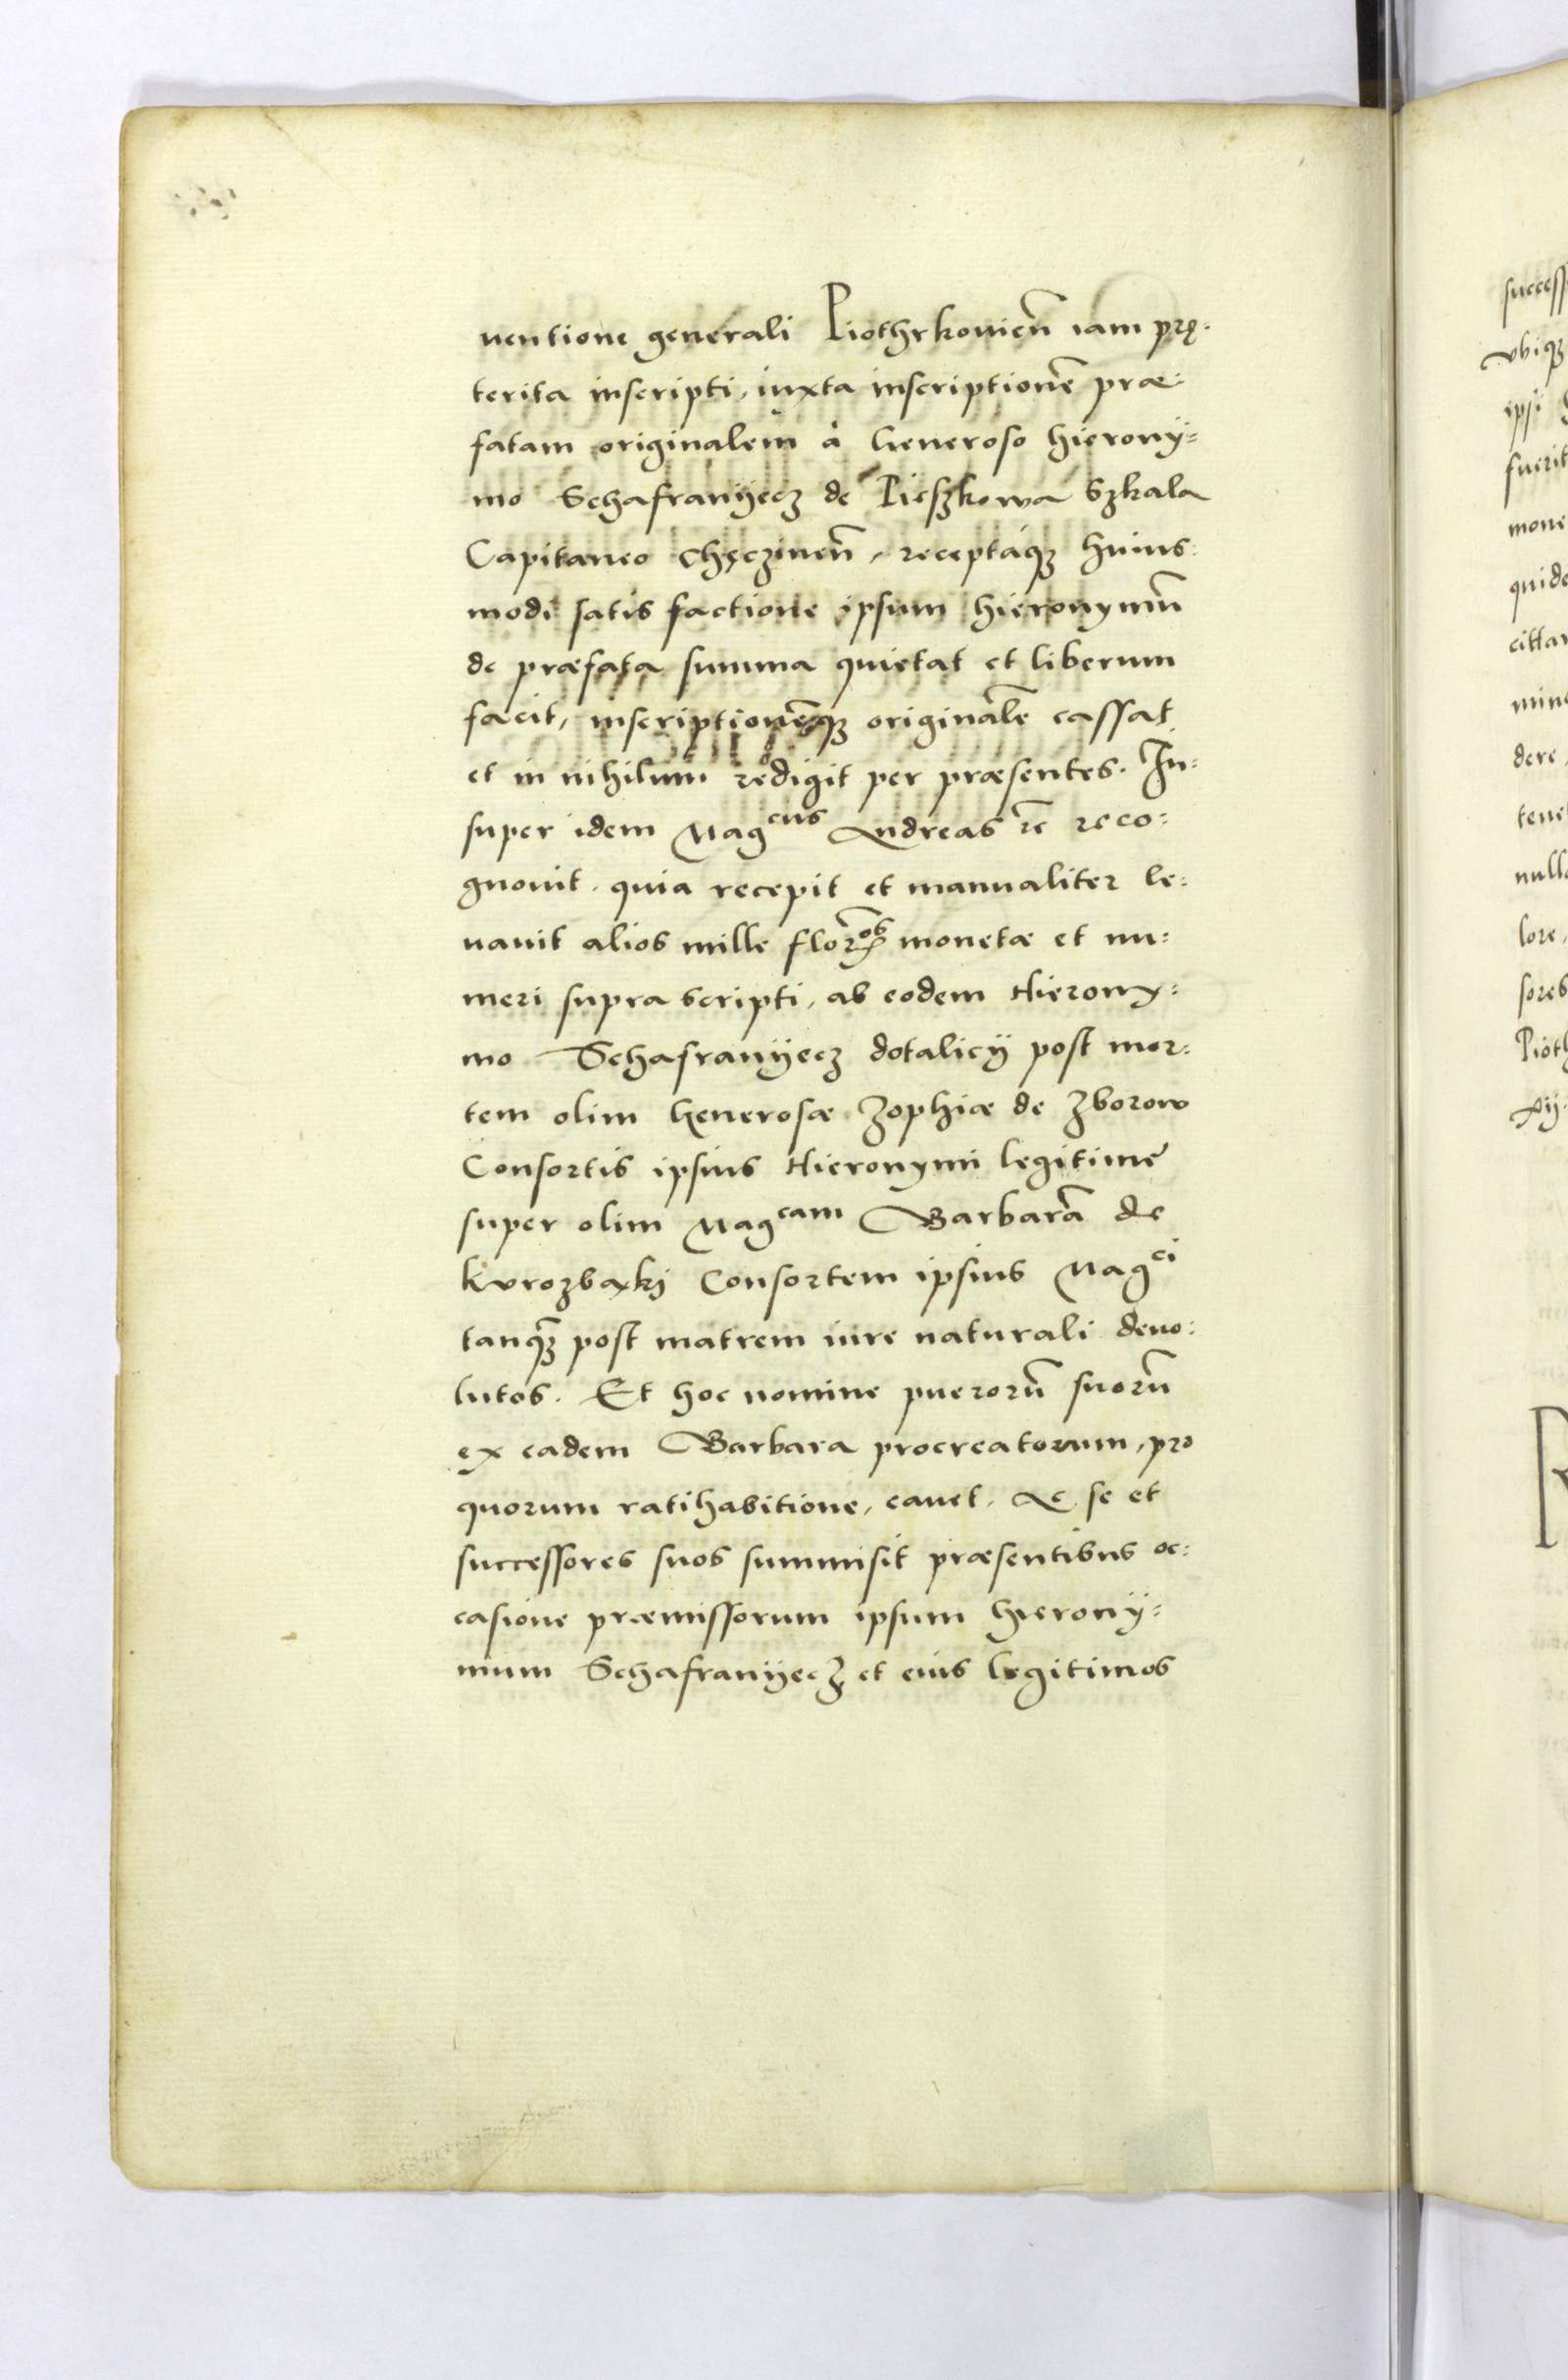 uentione generali Piothrkouien̄ iam prę-
terita inscripti, iuxta inscriptionē præ-
fatam originalem à Generoso Hierony=
mo Schafranÿecz de Pÿeszkowa Szkala
Capitaneo Chęczinen̄, receptaq₃ huius-
modi satis factione ipsum Hieronymū
de præfata summa quietat et liberum
facit, inscriptionēq₃ originalē cassat
et in nihilum redigit per præsentes. In=
super idem Magcus Andreas rē reco=
gnouit, quia recepit et manualiter le=
uauit alios mille florōs monetæ et nu=
meri supra scripti, ab eodem Hierony=
mo Schafranÿecz dotalicÿ post mor=
tem olim Generosæ Zophiæ de Zborow
Consortis ipsius Hieronymi legitimè
super olim Magcam Barbarā de
Kurozbaxkj Consortem ipsius Magci
tanq₃ post matrem iure naturali deuo=
lutos. Et hoc nomine puerorū suorū
ex eadem Barbara procreatorum, pro
quorum ratihabitione, cauet, Ac se et
successores suos summisit præsentibus oc=
casione præmissorum ipsum Hieronÿ=
mum Schafranÿecz et eius legitimos
success
vbiq₃
ipsi
fuerit
mone
quide
citta
mino
dere,
tene
nulla
lore,
sores
Pioth
xij.